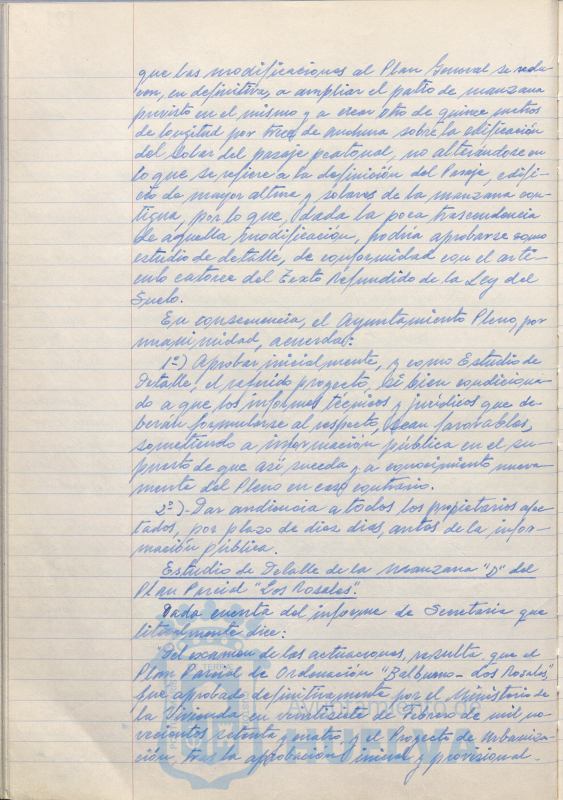 que las modificaciones al Plan General se redu-
cen, en definitiva, a ampliar el patio de manzana
previsto en el mismo y a crear otro de quince metros
de longitud por tres de anchura sobre la edificación
del Solar del pasaje peatonal, no alterándose en
lo que se refiere a la definición del Pasaje, edifi-
cio de mayor altura y solares de la manzana con-
tigua, por lo que, dada la poca trascendencia
de aquella modificación, podría aprobarse como
estudio de detalle, de conformidad con el artí-
culo catorce del Texto Refundido de la Ley del
Suelo.
En consecuencia, el Ayuntamiento Pleno, por
unanimidad, acuerda:
1º) Aprobar inicialmente, y como Estudio de
Detalle, el referido proyecto, si bien condiciona-
do a que los informes técnicos y jurídicos que de-
beran formularse al respecto, sean favorables,
sometiendo a información pública en el su-
puesto de que así suceda y a conocimiento nueva-
mente del Pleno en caso contrario.
2º)- Dar audiencia a todos los propietarios afec-
tados, por plazo de diez dias, antes de la infor-
mación pública.
Estudio de Detalle de la Manzana "D" del
Plan Parcial "Los Rosales".
Dada cuenta del informe de Secretaría que
literalmente dice:
"Del examen de las actuaciones, resulta, que el
Plan Parcial de Ordenación "Balbueno-Los Rosales"
fue aprobado definitivamente por el Ministerio de
la Vivienda en veintisiete de Febrero de mil no-
vecientos setenta y cuatro y el Proyecto de Urbaniza-
ción, tras la aprobación inicial y provisional-
Ayuntamiento de
HUELVA